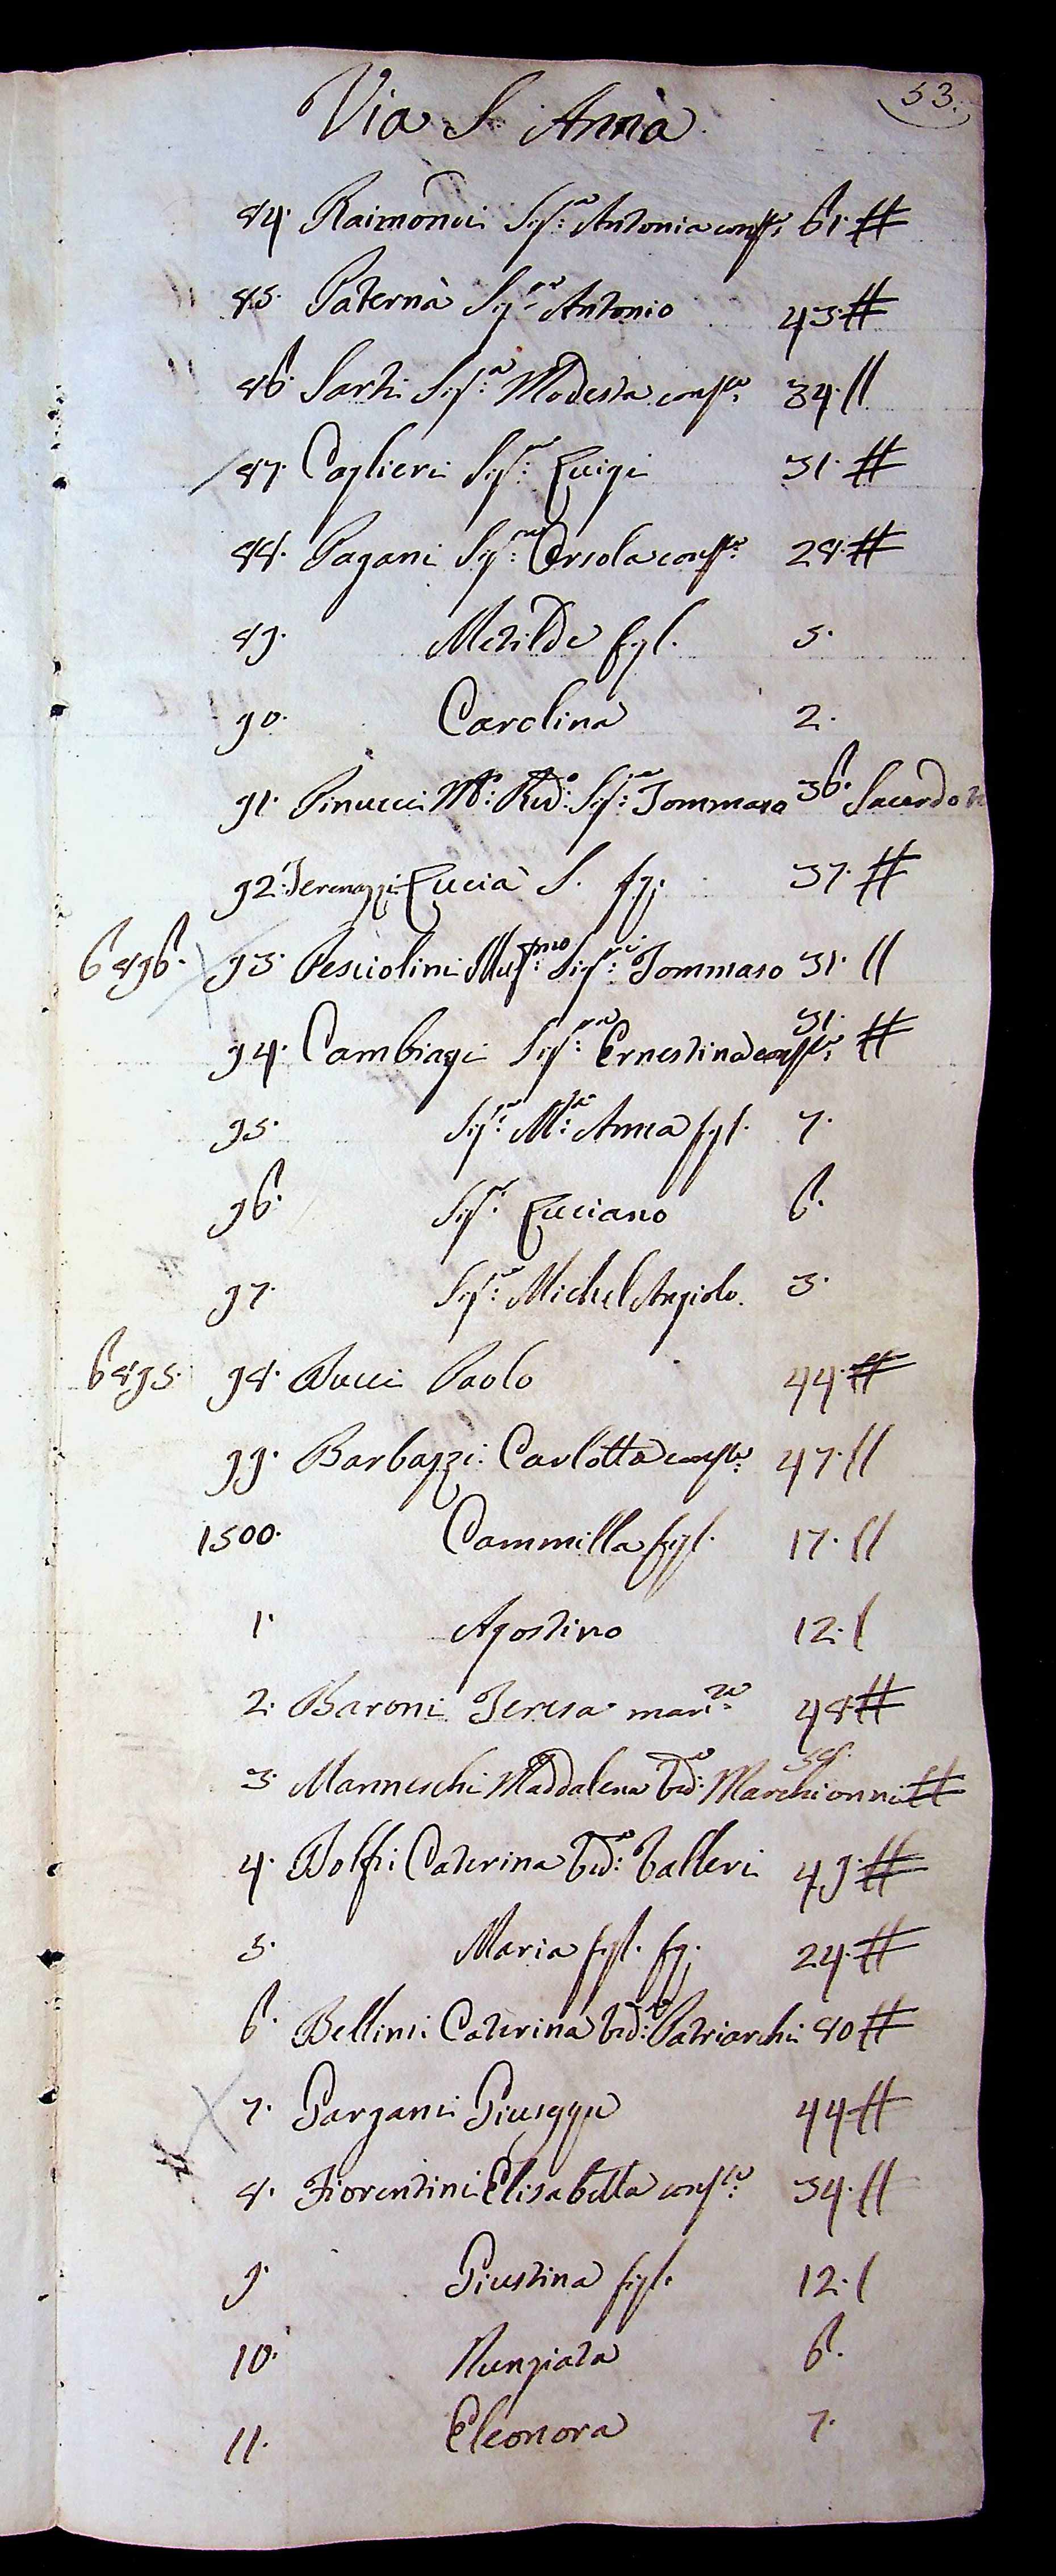 53.
Via S. Anna
84. Raimondi Sig.ra Antonia cons.te 61. #
85. Paternà Sig.re Antonio 43. #
86. Sarti Sig.ra Modesta cons.te 34. //
87. Caglieri Sig.re Luigi 31. #
88. Pagani Sig.ra Orsola cons.te 28. #
89. Metilde figl. 5.
90. Carolina 2.
91. Pinucci M.o Rev.do Sig.re Tommaso 36. Sacerdote
92. Terenazzi Lucia S. fg: 37. #
6896. 93. Pesciolini Illus.mo Sig.re Tommaso 31. //
94. Cambiagi Sig.ra Ernestina cons.te 31. #
95. Sig.ra M.a Anna figl. 7.
96. Sig.re Luciano 6.
97. Sig.re Michel Angiolo. 3.
6895. 98. Bucci Paolo 44. #
99. Barbazzi: Carlotta cons.te 47. //
1500. Cammilla figl. 17. //
1. Agostino 12. /
2. Baroni Teresa mar.ta 48 #
3. Manneschi Maddalena Ved.a Marchionni 38. #
4. Dolfi Caterina Ved.a Valleri 49. #
5. Maria figl. fg. 24. #
6. Bellini Caterina Ved.a Patriarchi 80 #
7. Gargani Giuseppe 44 #
8. Fiorentini Elisabetta cons.te 34. //
9. Giustina figl. 12. /
10. Nunziata 6.
11. Eleonora 7.